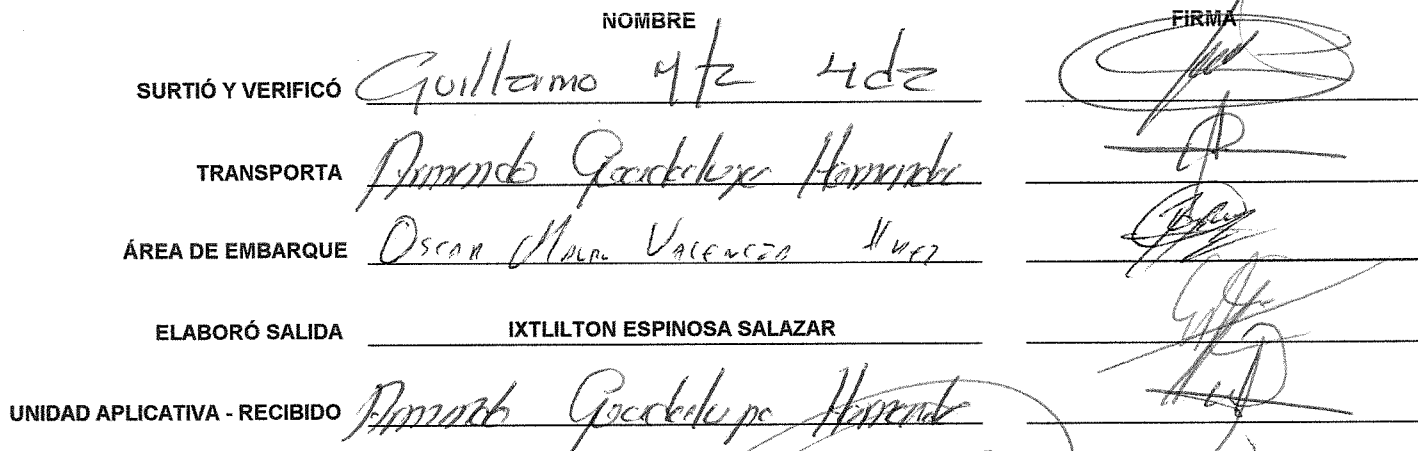 NOMBRE FIRMA
SURTIÓ Y VERIFICÓ Guillermo Mtz Hdz
TRANSPORTA Armando Guadalupe Hernandez
ÁREA DE EMBARQUE Oscar Valencia
ELABORÓ SALIDA IXTLILTON ESPINOSA SALAZAR
UNIDAD APLICATIVA - RECIBIDO Armando Guadalupe Hernandez